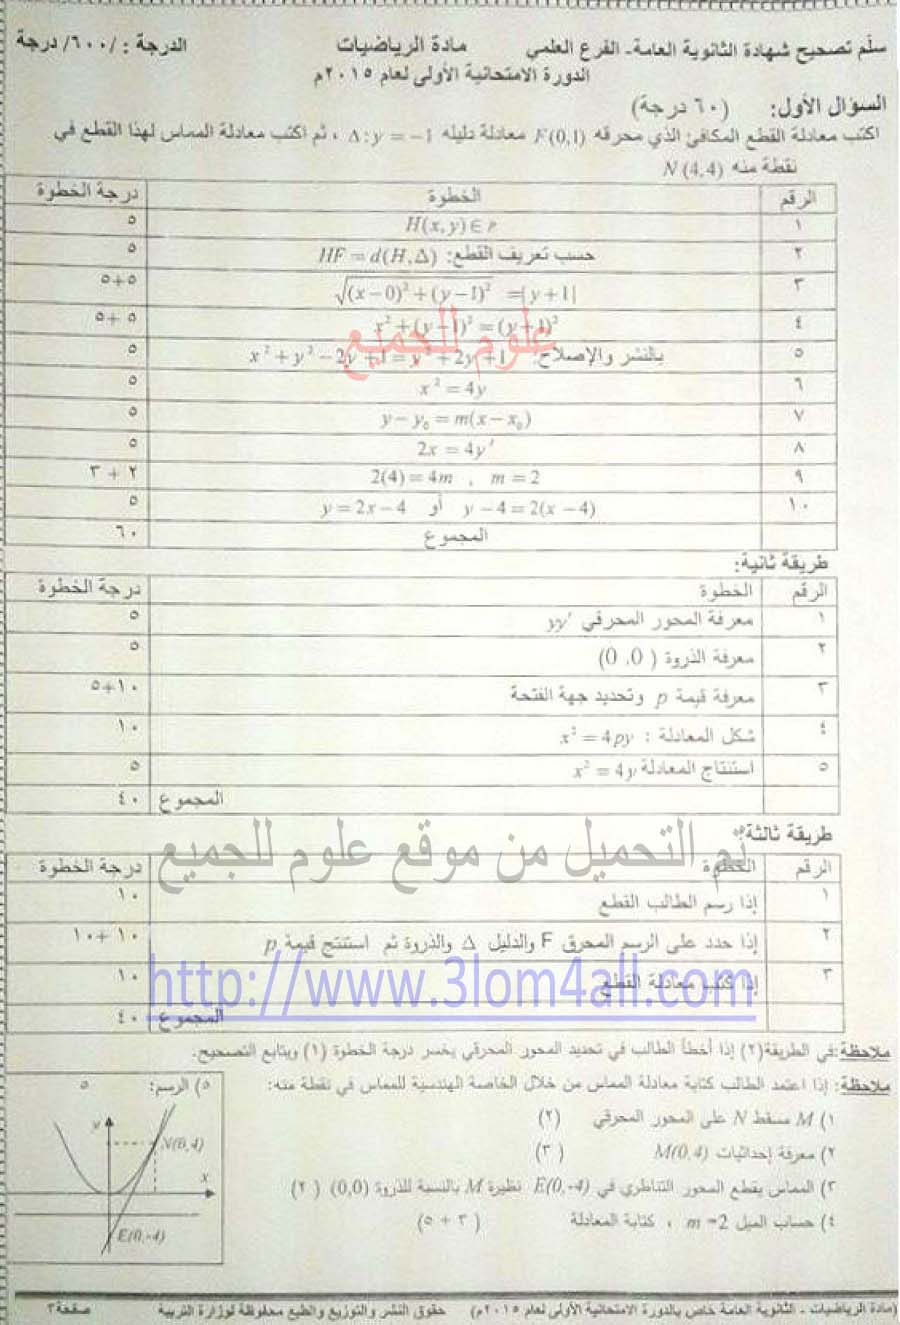 سلّم تصحيح شهادة الثانوية العامة- الفرع العلمي مادة الرياضيات الدرجة : /٦٠٠/ درجة
الدورة الامتحانية الأولى لعام ٢٠١٥م
السؤال الأول: (٦٠ درجة)
اكتب معادلة القطع المكافئ الذي محرقه F(0,1) معادلة دليله Δ: y = −1 ، ثم اكتب معادلة المماس لهذا القطع في
نقطة منه N (4,4)
الرقم الخطوة درجة الخطوة
١ H(x, y) ∈ P ٥
٢ حسب تعريف القطع: HF = d(H, Δ) ٥
٣ √(x−0)² + (y−1)² = |y+1| ٥+٥
٤ x² + (y−1)² = (y+1)² ٥+ ٥
٥ بالنشر والإصلاح: x² + y² − 2y + 1 = y² + 2y + 1 ٥
٦ x² = 4y ٥
٧ y − y₀ = m(x − x₀) ٥
٨ 2x = 4y′ ٥
٩ 2(4) = 4m , m = 2 ٢ + ٣
١٠ y − 4 = 2(x − 4) أو y = 2x − 4 ٥
المجموع ٦٠
علوم للجميع
طريقة ثانية:
الرقم الخطوة درجة الخطوة
١ معرفة المحور المحرقي yy′ ٥
٢ معرفة الذروة (0, 0) ٥
٣ معرفة قيمة p وتحديد جهة الفتحة ١٠+٥
٤ شكل المعادلة : x² = 4py ١٠
٥ استنتاج المعادلة x² = 4y ٥
المجموع ٤٠
طريقة ثالثة:
تم التحميل من موقع علوم للجميع
الرقم الخطوة درجة الخطوة
١ إذا رسم الطالب القطع ١٠
٢ إذا حدد على الرسم المحرق F والدليل Δ والذروة ثم استنتج قيمة p ١٠ +١٠
٣ إذا كتب معادلة القطع ١٠
المجموع ٤٠
http://www.3lom4all.com
ملاحظة:في الطريقة(٢) إذا أخطأ الطالب في تحديد المحور المحرقي يخسر درجة الخطوة (١) ويتابع التصحيح.
ملاحظة: إذا اعتمد الطالب كتابة معادلة المماس من خلال الخاصة الهندسية للمماس في نقطة منه:
١) M مسقط N على المحور المحرقي (٢)
٢) معرفة إحداثيات M(0,4) (٣)
٣) المماس يقطع المحور التناظري في E(0,-4) نظيرة M بالنسبة للذروة (0,0) (٢)
٤) حساب الميل m =2 ، كتابة المعادلة (٣ + ٥)
٥) الرسم: ٥
y
N(0,4)
x
E(0,-4)
(مادة الرياضيات - الثانوية العامة خاص بالدورة الامتحانية الأولى لعام ٢٠١٥م) حقوق النشر والتوزيع والطبع محفوظة لوزارة التربية صفحة٣